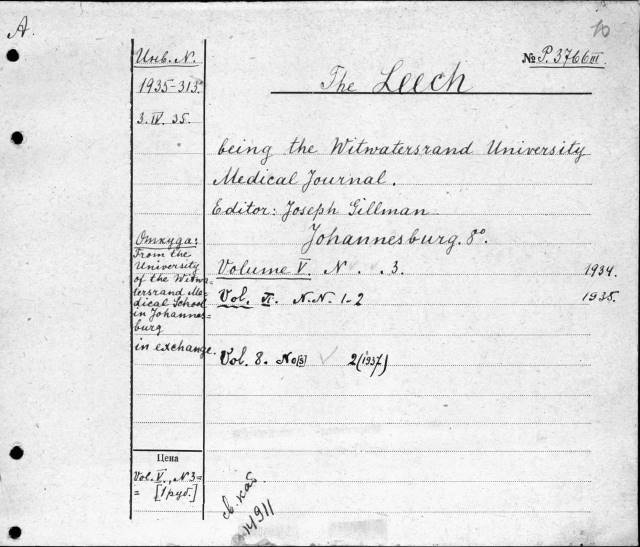 A.
10
Инв. N.
1935-315
3.IV.35.
№ P.3766III.
The Leech
being the Witwatersrand University
Medical Journal.
Editor: Joseph Gillman
Johannesburg. 8°.
Откуда:
From the
University
of the Witwa-
tersrand Me-
dical School
in Johannes-
burg
in exchange.
Volume V. N . . 3. 1934.
Vol. VI. N.N. 1-2 1935.
Vol. 8. No[s] ✓ 2(1937)
Цена
Vol. V., N3=
= [1 руб.]
св. каб.
14911